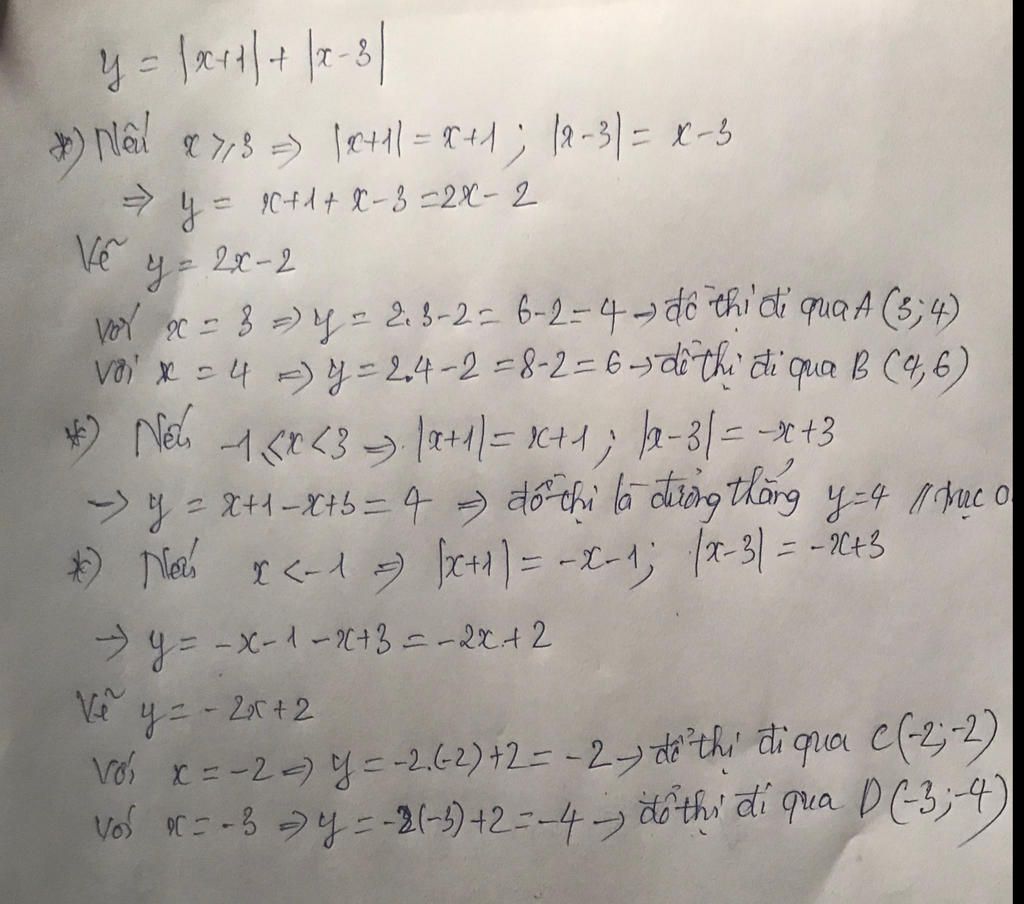 y = |x+1| + |x-3|
*) Nếu x ≥ 3 ⇒ |x+1| = x+1 ; |x-3| = x-3
⇒ y = x+1+x-3 = 2x-2
Vẽ y = 2x-2
với x = 3 ⇒ y = 2.3-2 = 6-2 = 4 → đồ thị đi qua A (3;4)
với x = 4 ⇒ y = 2.4-2 = 8-2 = 6 → đồ thị đi qua B (4,6)
*) Nếu -1 ≤ x < 3 ⇒ |x+1| = x+1 ; |x-3| = -x+3
→ y = x+1-x+3 = 4 ⇒ đồ thị là đường thẳng y=4 // trục O
*) Nếu x < -1 ⇒ |x+1| = -x-1 ; |x-3| = -x+3
→ y = -x-1-x+3 = -2x+2
Vẽ y = -2x+2
Với x = -2 ⇒ y = -2.(-2)+2 = -2 → đồ thị đi qua C(-2;-2)
với x = -3 ⇒ y = -2(-3)+2 = -4 → đồ thị đi qua D(-3;-4)